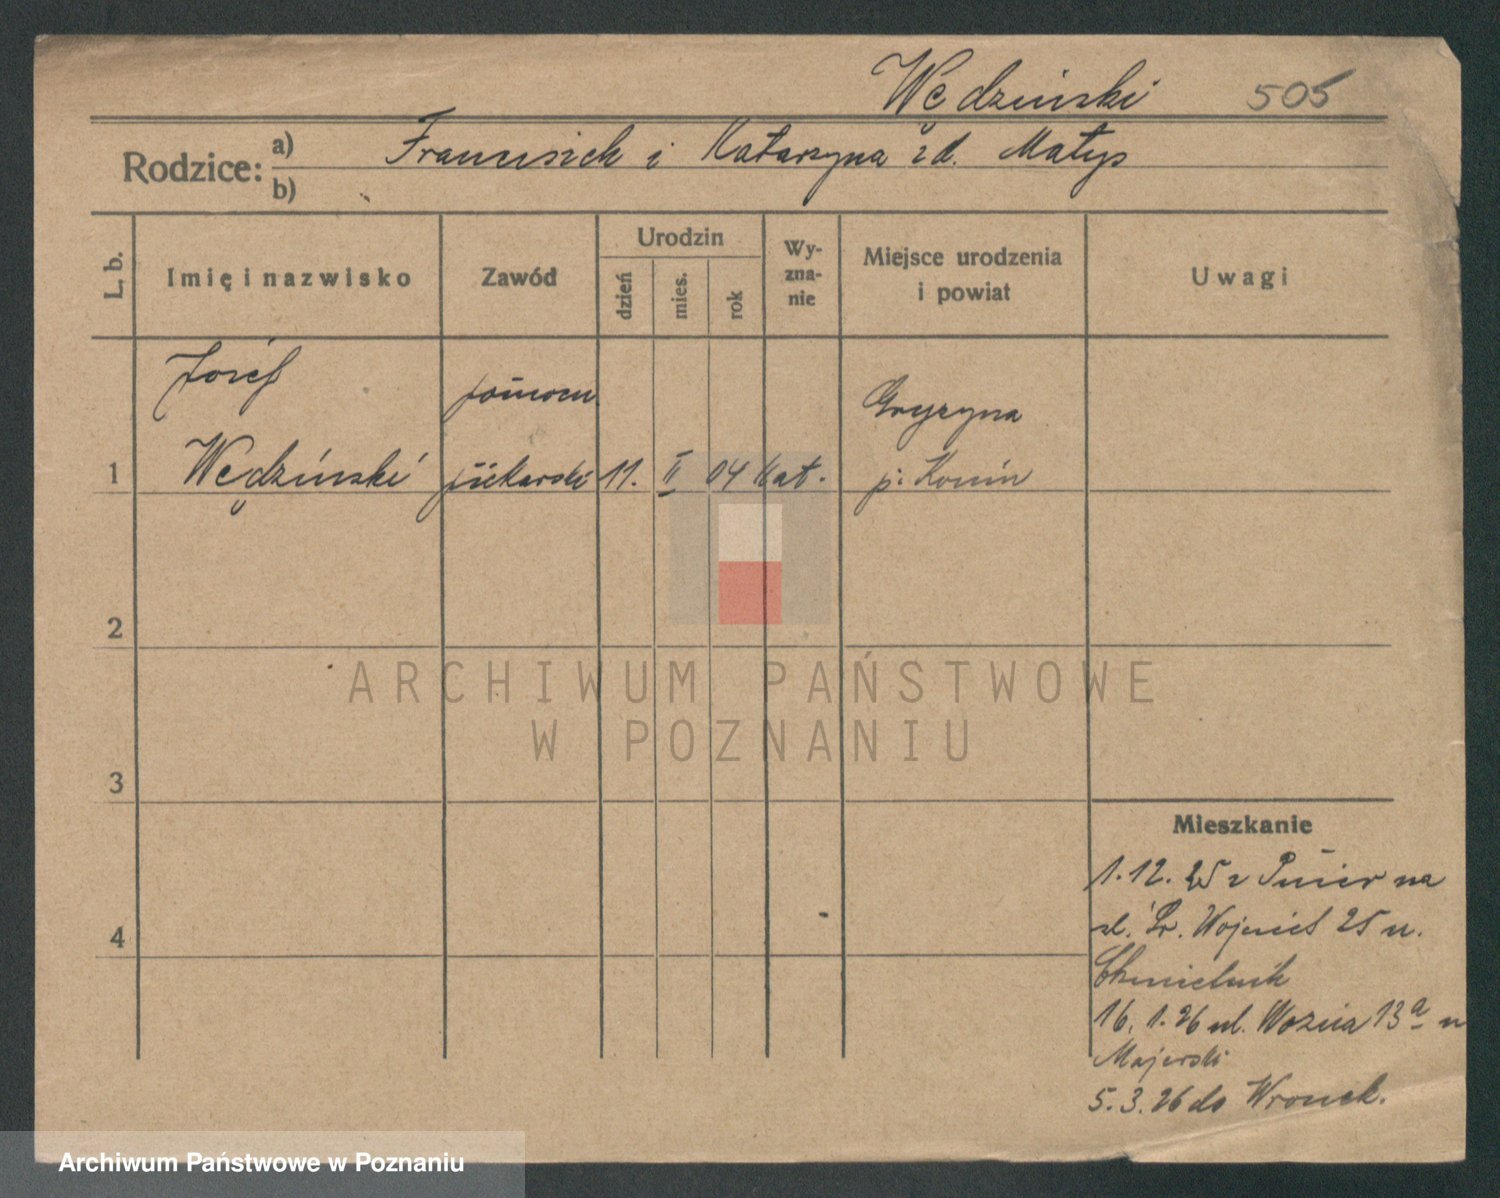 Wędziński 505
Rodzice: a) Franciszek i Katarzyna zd. Matys
b)
L. b.
Imię i nazwisko
Zawód
Urodzin
dzień
mies.
rok
Wy-
zna-
nie
Miejsce urodzenia
i powiat
Uwagi
Józef
pomocn.
Gryzyna
1 Wędziński piekarski 11. II 04 kat. p. Konin
2
3
4
ARCHIWUM PAŃSTWOWE
W POZNANIU
Mieszkanie
1.12.25 z Pniew na
ul. Św. Wojciech 25 u.
Chmielnik
16.1.26 ul. Woźna 13a u
Majerski
5.3.26 do Wronek.
Archiwum Państwowe w Poznaniu